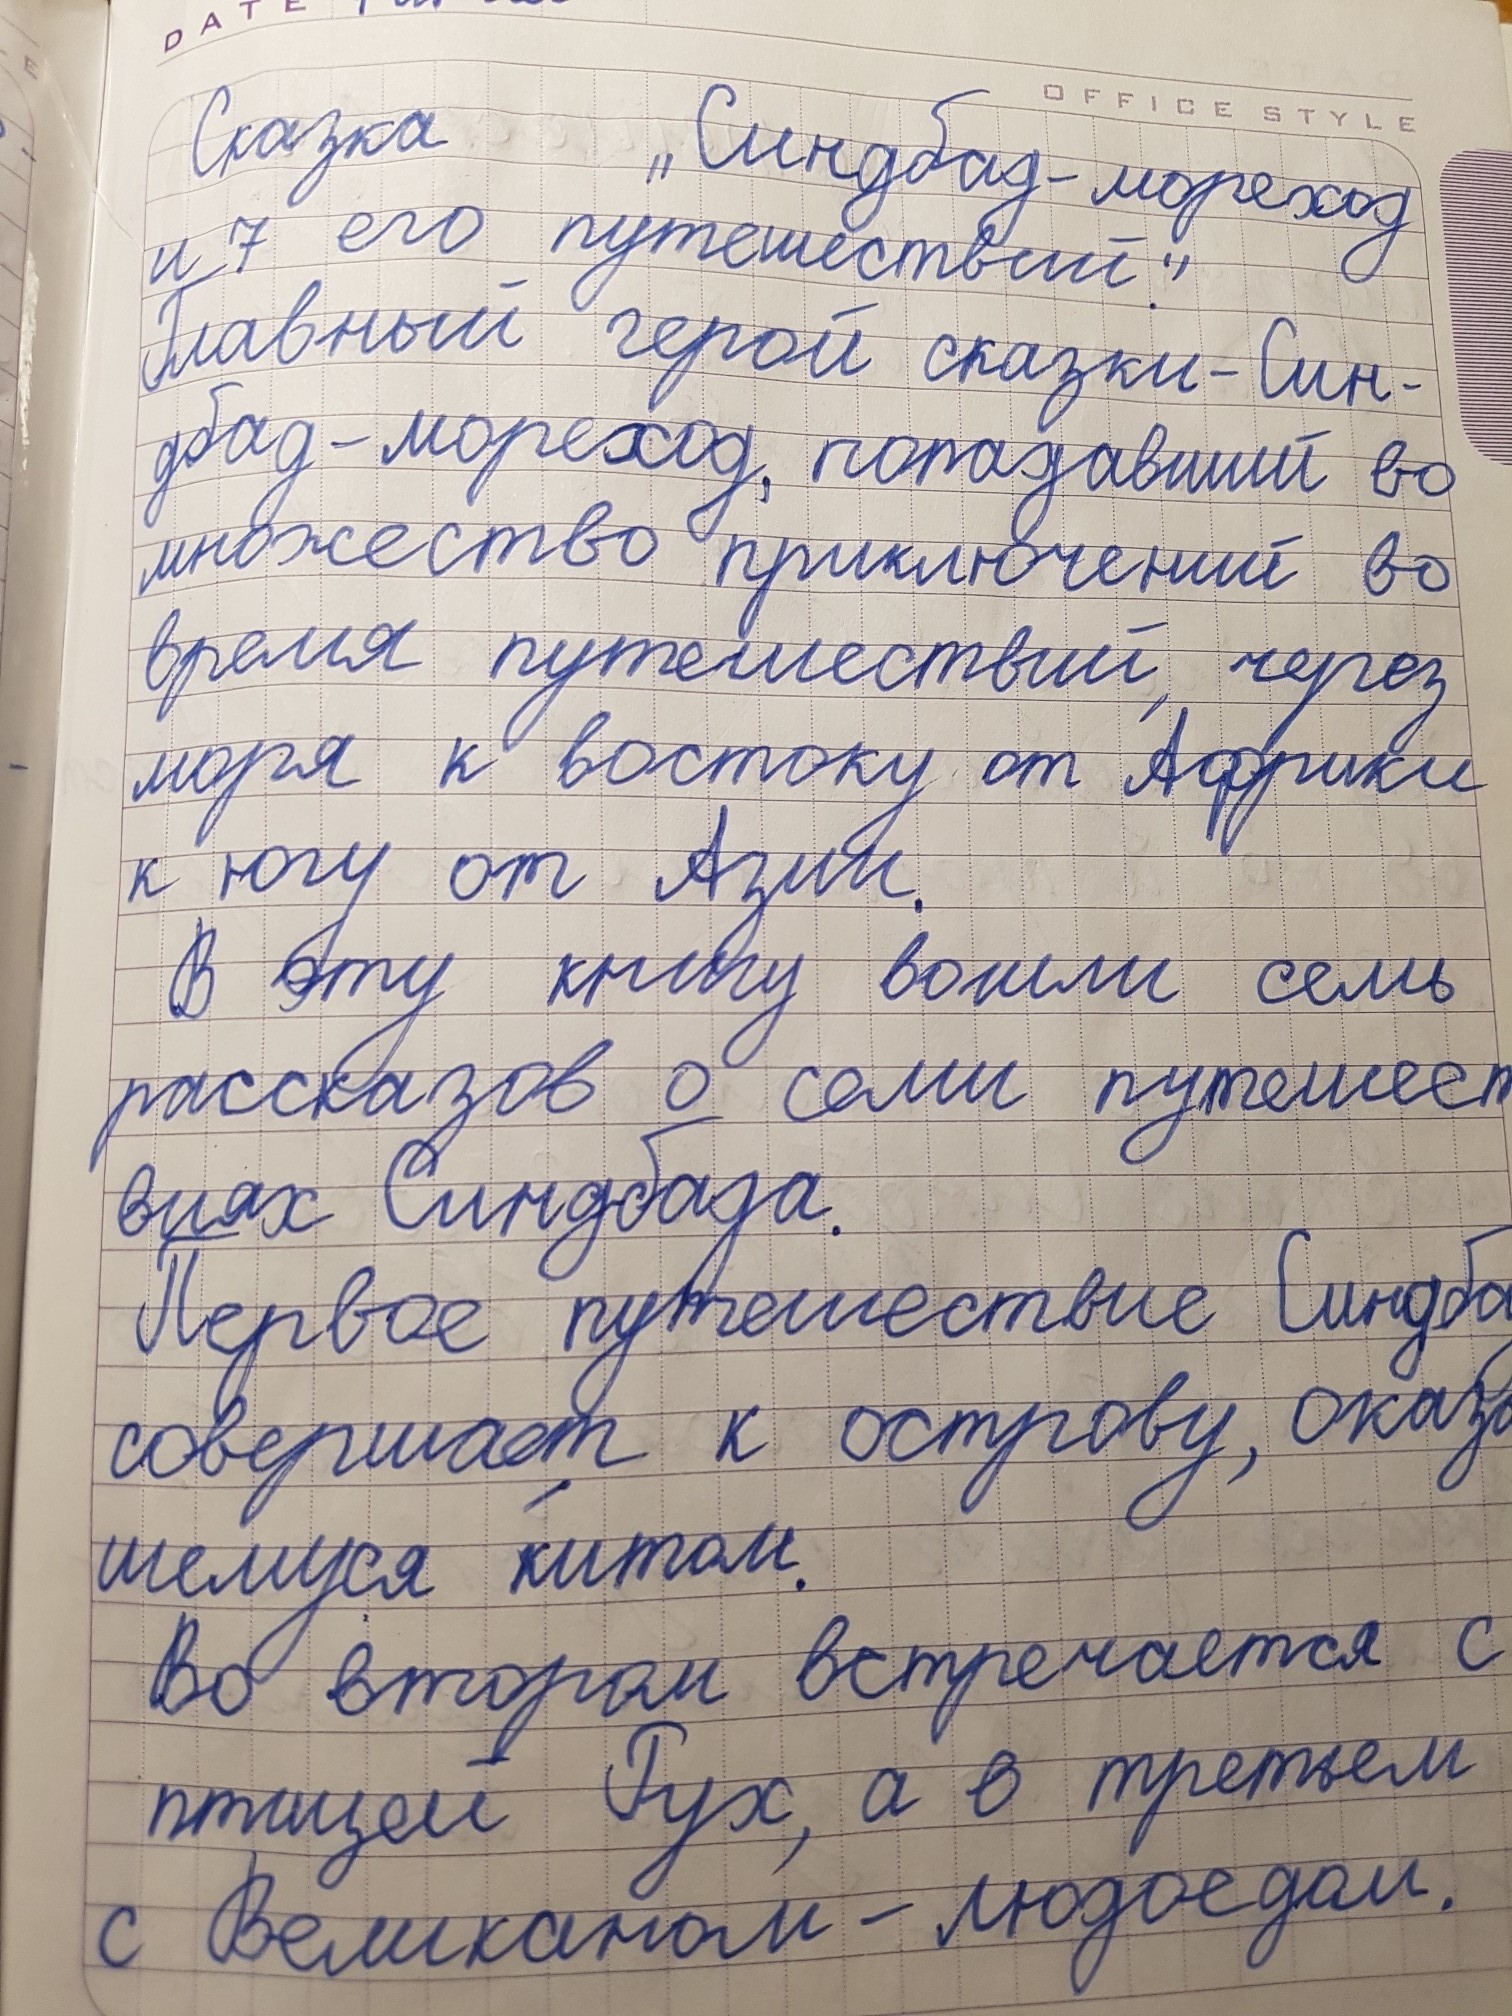 DATE
OFFICE STYLE
Сказка „Синдбад-мореход
и 7 его путешествий."
Главный герой сказки-Син-
дбад-мореход, попадавший во
множество приключений во
время путешествий, через
моря к востоку от Африки
к югу от Азии.
В эту книгу вошли семь
рассказов о семи путешест
виях Синдбада.
Первое путешествие Синдба
совершает к острову, оказа
шемуся китом.
Во втором встречается с
птицей Рух, а в третьем
с Великаном-людоедом.